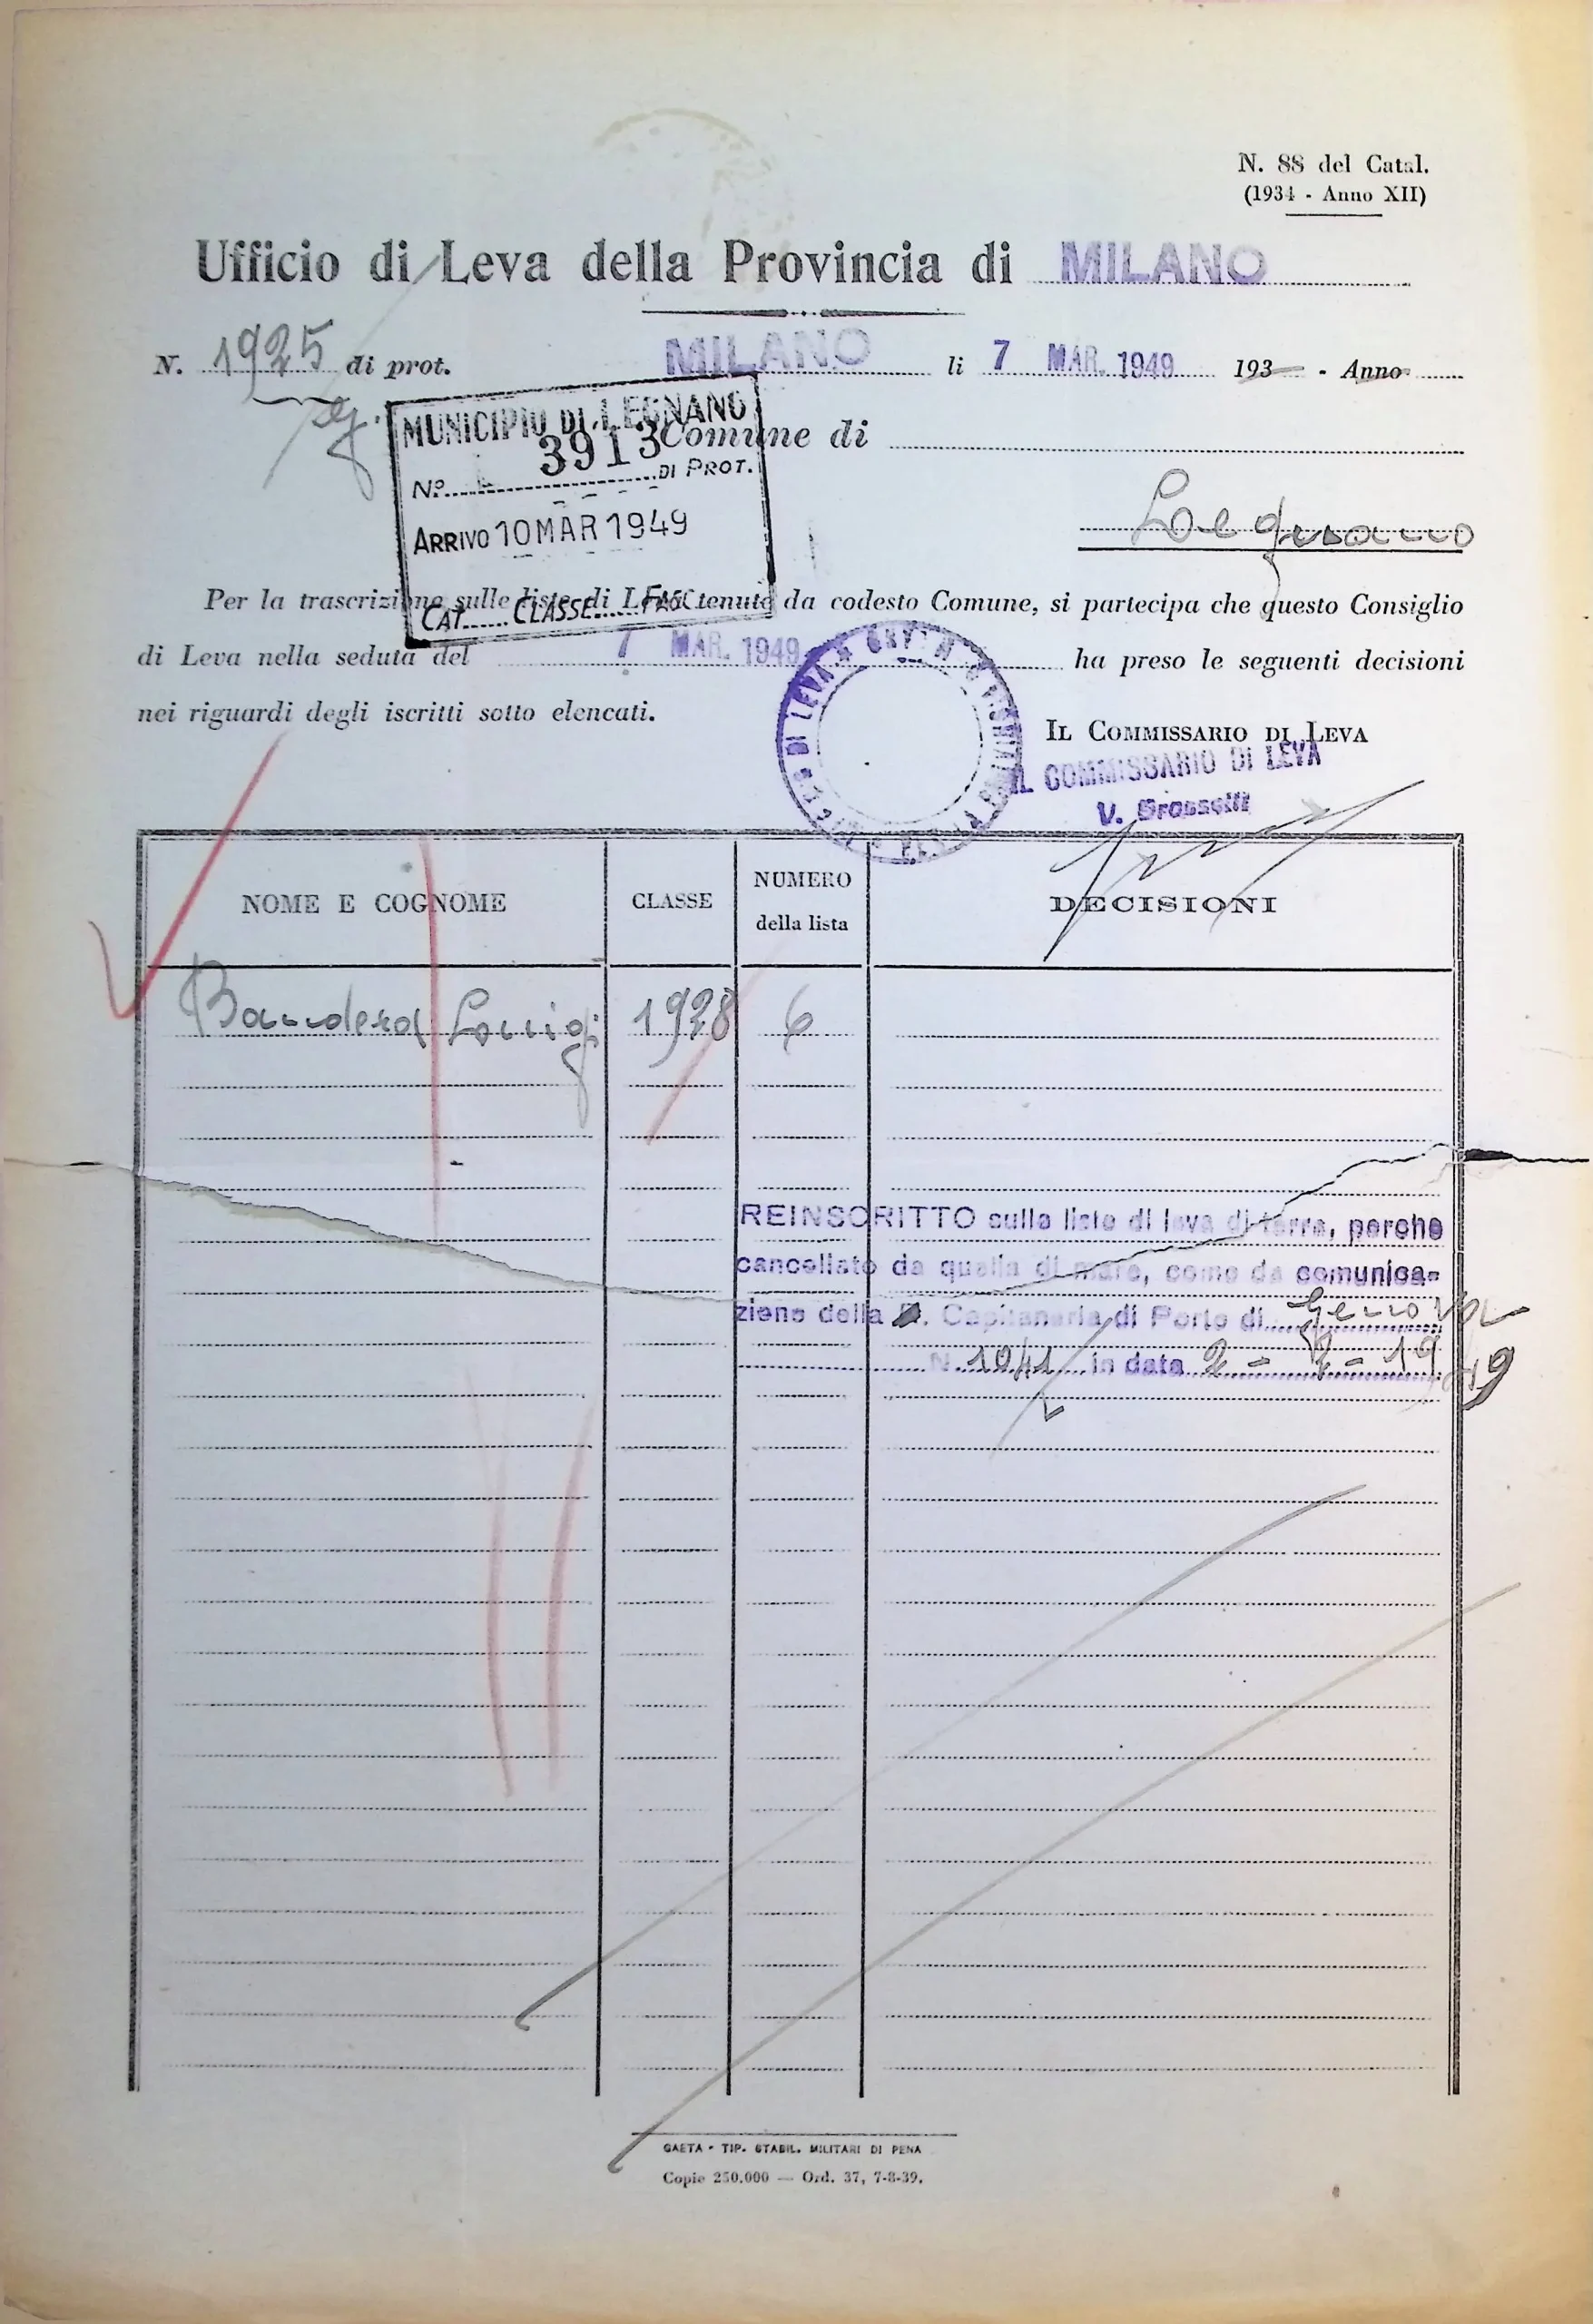 N. 88 del Catal.
(1934 - Anno XII)
Ufficio di Leva della Provincia di MILANO
N. 1925 di prot. MILANO li 7 MAR. 1949 193 - Anno
MUNICIPIO DI LEGNANO
Nº 3913 DI PROT.
ARRIVO 10 MAR 1949
CAT. CLASSE FASC
Comune di
Legnano
Per la trascrizione sulle liste di Leva tenute da codesto Comune, si partecipa che questo Consiglio
di Leva nella seduta del 7 MAR. 1949 ha preso le seguenti decisioni
nei riguardi degli iscritti sotto elencati.
DI LEVA
IL COMMISSARIO DI LEVA
IL COMMISSARIO DI LEVA
V. Brosselli
NOME E COGNOME CLASSE NUMERO della lista DECISIONI
Bandera Luigi 1928 6
REINSCRITTO sulle liste di leva di terra, perche
cancellato da quella di mare, come da comunica-
zione della R. Capitaneria di Porto di Genova
N. 1041 in data 2 - 2 - 1949
GAETA - TIP. STABIL. MILITARI DI PENA
Copie 250.000 — Ord. 37, 7-8-39.